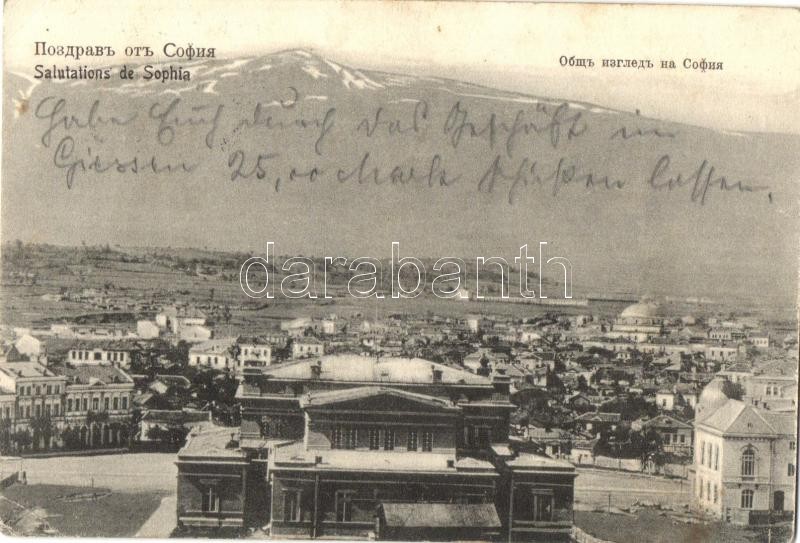 Поздравъ отъ София
Salutations de Sophia
Общъ изгледъ на София
Habe Euch durch das Geschäft in
Giessen 25,00 Mark schicken lassen.
darabanth